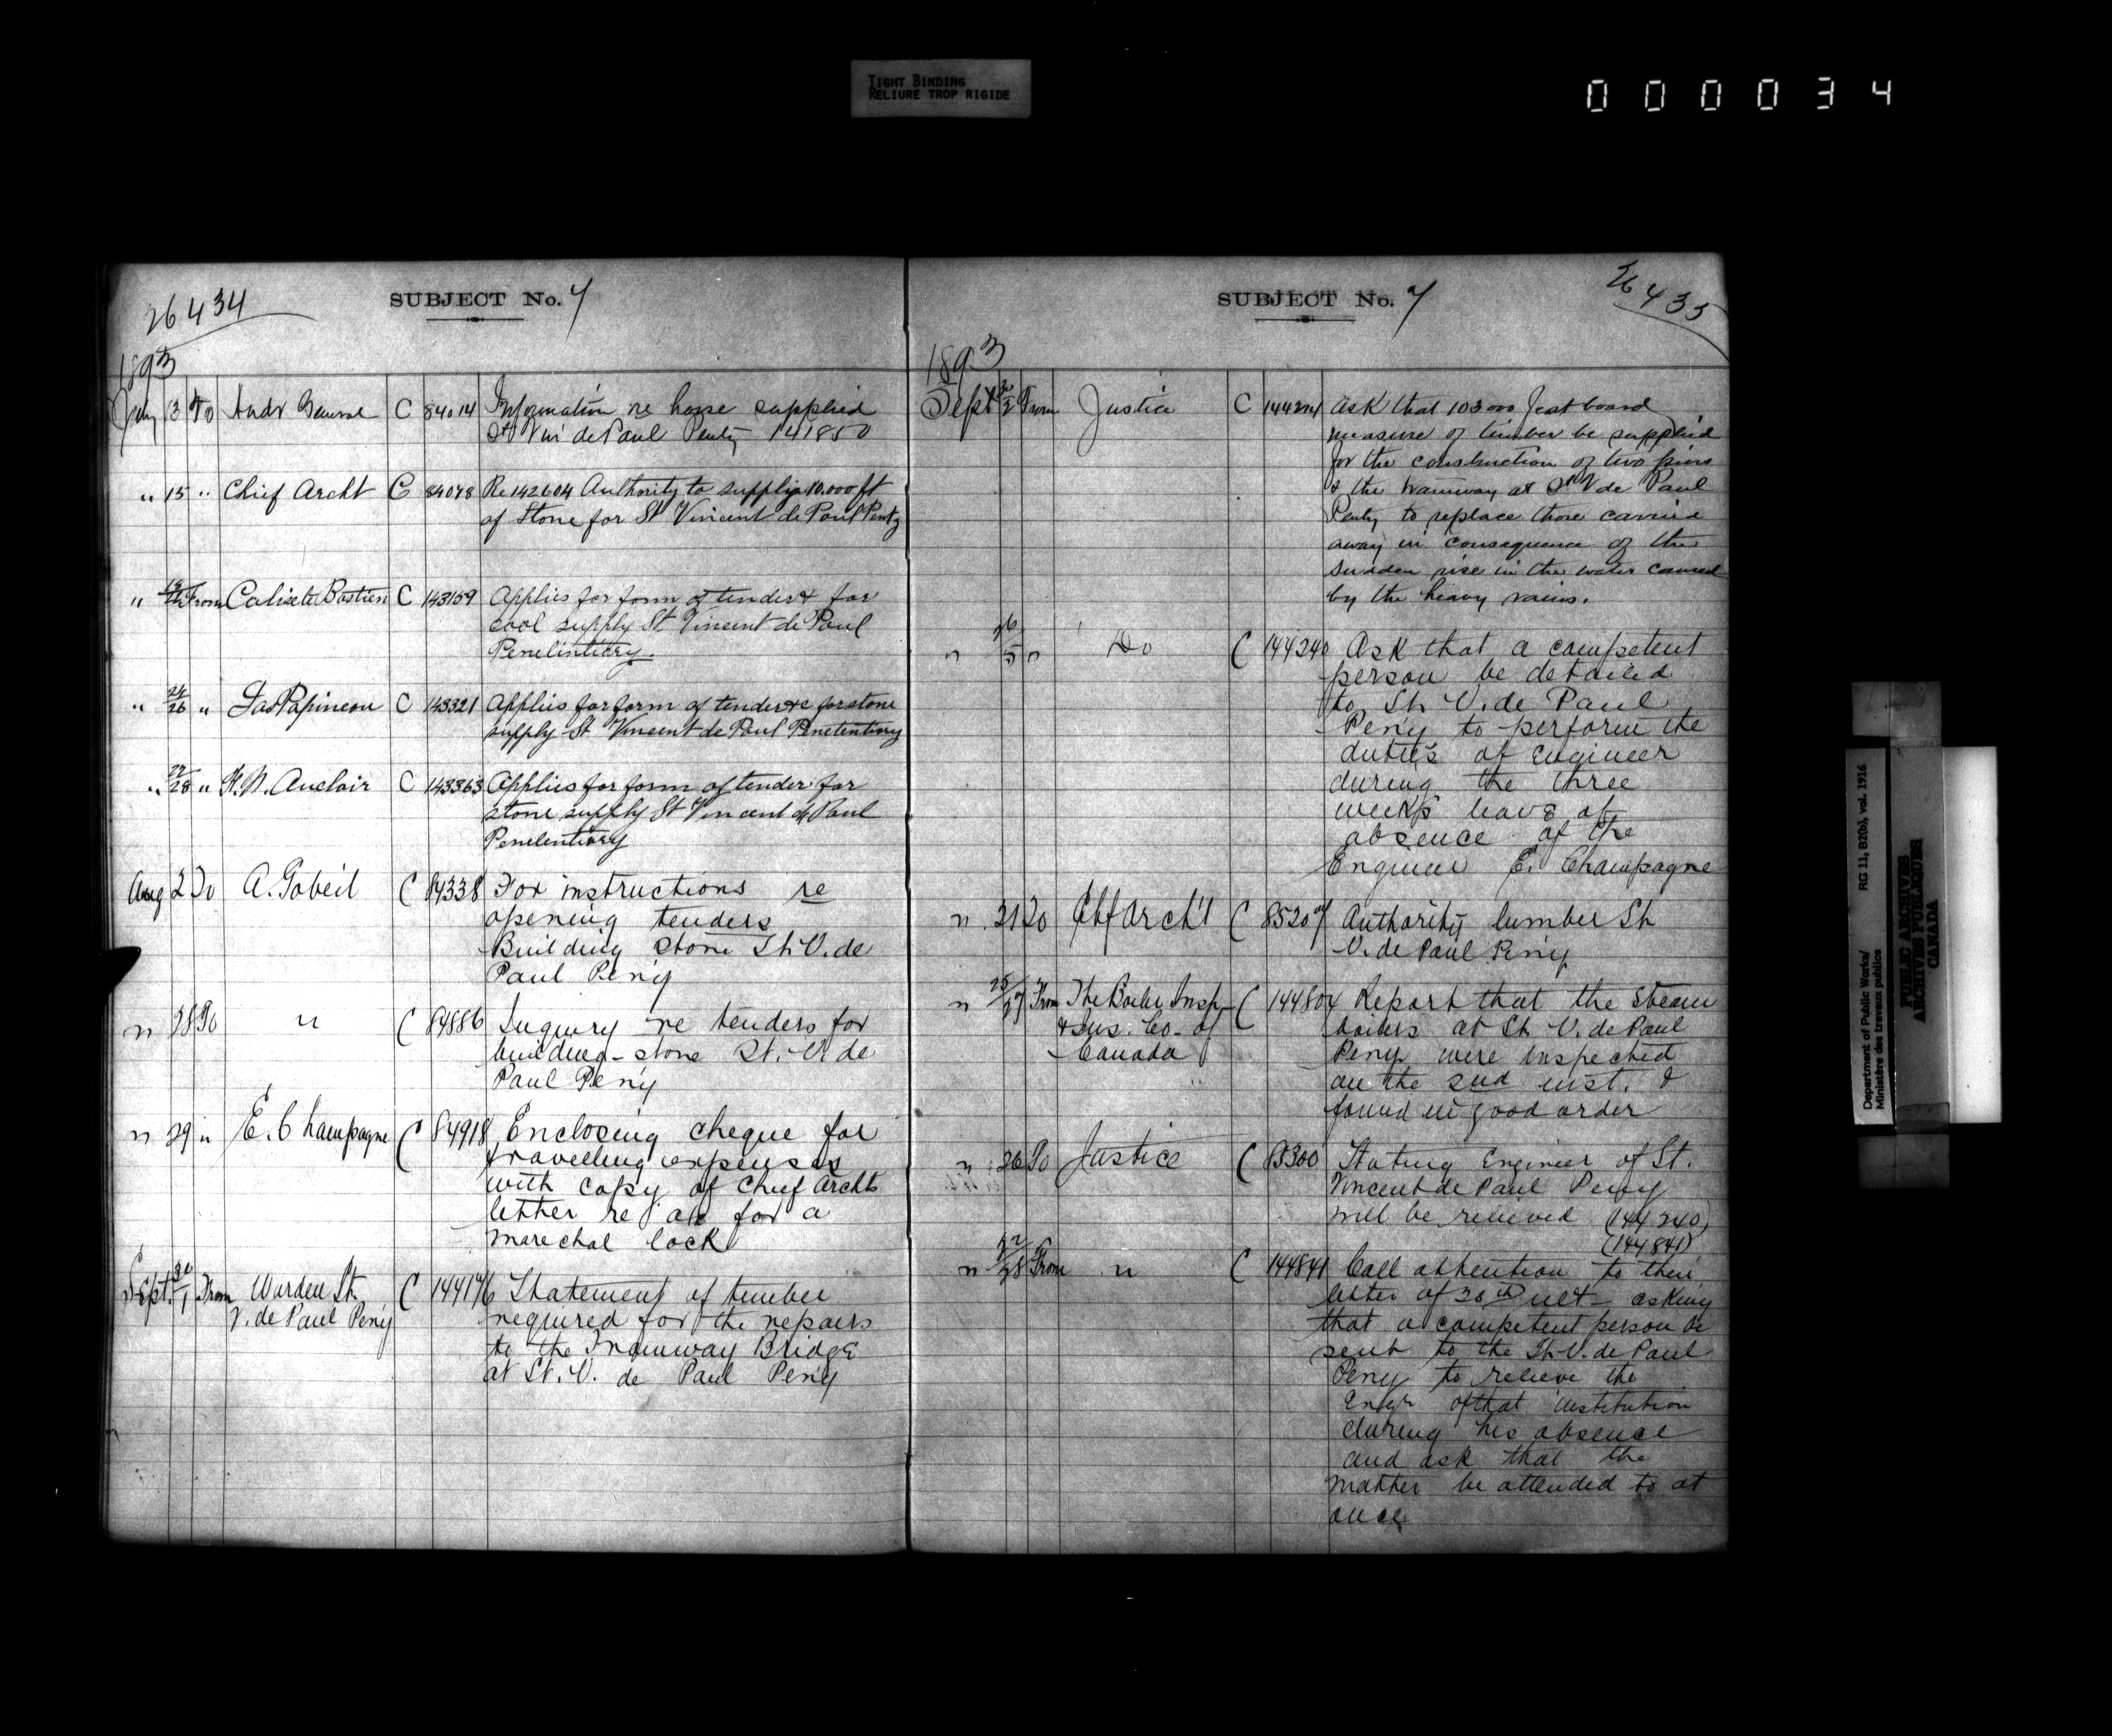 TIGHT BINDING
RELIURE TROP RIGIDE
000034
26434
SUBJECT No. 7
1893
July 13 To Audr General C 84014 Information re horse supplied
St Vin de Paul Penty 141850
" 15 " Chief Archt C 84078 Re 142604 Authority to supply 10.000 ft
of Stone for St Vincent de Paul Penty
" From Calixte Bastien C 143109 Applies for form of tender & for
cool supply St. Vincent de Paul
Penelintiery.
" 24/26 " Jas Papineau C 143321 Applies for form of tender &c for stone
supply St Vincent de Paul Penetentiary
" 27/28 " H. N. Auclair C 143363 Applies for form of tender for
stone supply St Vincent de Paul
Penelentiary
Aug 2 To A. Gobeil C 84338 For instructions re
opening tenders
Building stone St. V. de
Paul Peny
" 28 To " C 84886 Inquiry re tenders for
building stone St. V. de
Paul Peny
" 29 " E. Champagne C 84918 Enclosing cheque for
travelling expenses
with copy of Chief Archts
letter re for a
marechal lock
Sept. 31/1 From Warden St. C 144176 Statement of timber
V. de Paul Peny required for the repairs
to the Tramway Bridge
at St. V. de Paul Peny
26435
SUBJECT No. 7
1893
Sept 30/2 From Justice C 144204 Ask that 103000 feet board
measure of timber be supplied
for the construction of two piers
& the tramway at St V de Paul
Penty to replace those carried
away in consequence of the
sudden rise in the water caused
by the heavy rains.
" 26/5 " Do C 144240 Ask that a competent
person be detailed
to St V. de Paul
Peny to perform the
duties of engineer
during the three
weeks leave of
absence of the
Engineer E. Champagne
" 21 To Chf Arch't C 85207 Authority lumber St
V. de Paul Peny
" 25/27 From The Boiler Insp C 144804 Report that the steam
& Ins. Co. of boilers at St V. de Paul
Canada Peny were inspected
on the 2nd inst. &
found in good order
" 26 To Justice C 85300 Stating Engineer of St.
Vincent de Paul Peny
will be relieved (144240)
(144841)
" 27/28 From " C 144841 Call attention to their
letter of 26th ult asking
that a competent person be
sent to the St. V. de Paul
Peny to relieve the
Engr of that institution
during his absence
and ask that the
matter be attended to at
once
Department of Public Works/ RG 11, B2(b), vol. 1916
Ministère des travaux publics
PUBLIC ARCHIVES
ARCHIVES PUBLIQUES
CANADA